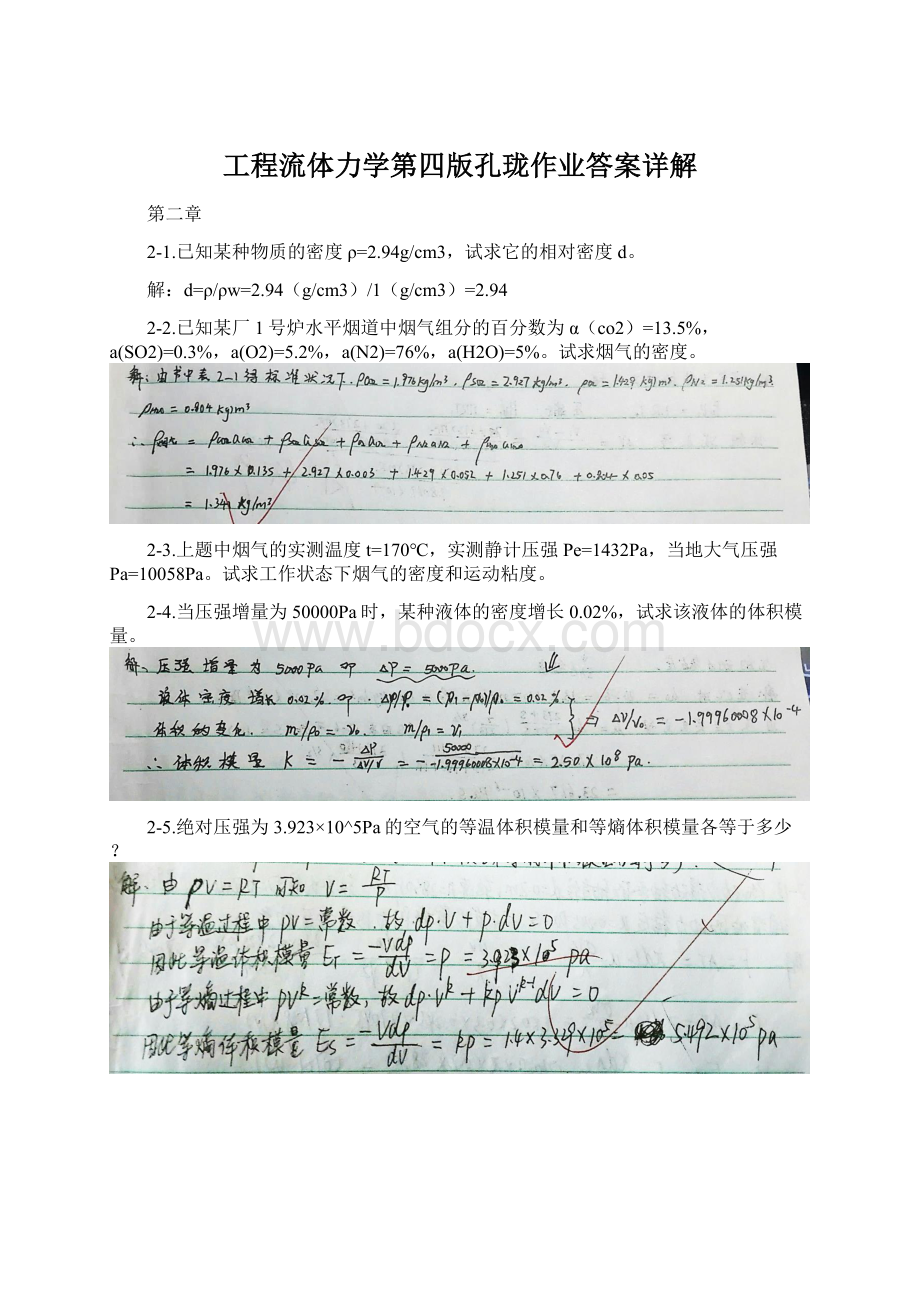 工程流体力学第四版孔珑作业答案详解
第二章
2-1.已知某种物质的密度ρ=2.94g/cm3，试求它的相对密度d。
解：d=ρ/ρw=2.94（g/cm3）/1（g/cm3）=2.94
2-2.已知某厂1号炉水平烟道中烟气组分的百分数为α（co2）=13.5%，
a(SO2)=0.3%，a(O2)=5.2%，a(N2)=76%，a(H2O)=5%。试求烟气的密度。
解：由书中表2-1得标准状况下，ρCO2=1.976kg/m³，ρSO2=2.927kg/m³，ρO2=1.429kg/m³，ρN2=1.251kg/m³
ρH2O=0.804kg/m³
∴ρ烟气=ρCO2αCO2+ρSO2αSO2+ρO2αO2+ρN2αN2+ρH2OαH2O
=1.976×0.135+2.927×0.003+1.429×0.052+1.251×0.76+0.804×0.05
=1.341kg/m³
2-3.上题中烟气的实测温度t=170℃，实测静计压强Pe=1432Pa，当地大气压强
Pa=10058Pa。试求工作状态下烟气的密度和运动粘度。
2-4.当压强增量为50000Pa时，某种液体的密度增长0.02%，试求该液体的体积模
量。
www.bdocx.com
解、压强增量为5000Pa 即 ΔP=5000Pa.
液体密度增长0.02% 即 Δρ/ρ0=(ρ1-ρ0)/ρ0=0.02%
体积的变化. m/ρ0=V0. m/ρ1=V1 ⇒ ΔV/V0=-1.99960008×10⁻⁴
∴体积模量 K=-ΔP/(ΔV/V)=-50000/(-1.99960008×10⁻⁴)=2.50×10⁸Pa.
2-5.绝对压强为3.923×10^5Pa的空气的等温体积模量和等熵体积模量各等于多少
？
解、由pV=RT可知 V=RT/P
由于等温过程中pV=常数，故dp·V+p·dV=0
因此等温体积模量ET=-Vdp/dV=p=3.923×10⁵pa
由于等熵过程中pVᵏ=常数，故dp·Vᵏ+kpVᵏ⁻¹dV=0
因此等熵体积模量Es=-Vdp/dV=kp=1.4×3.329×10⁵=5.492×10⁵pa